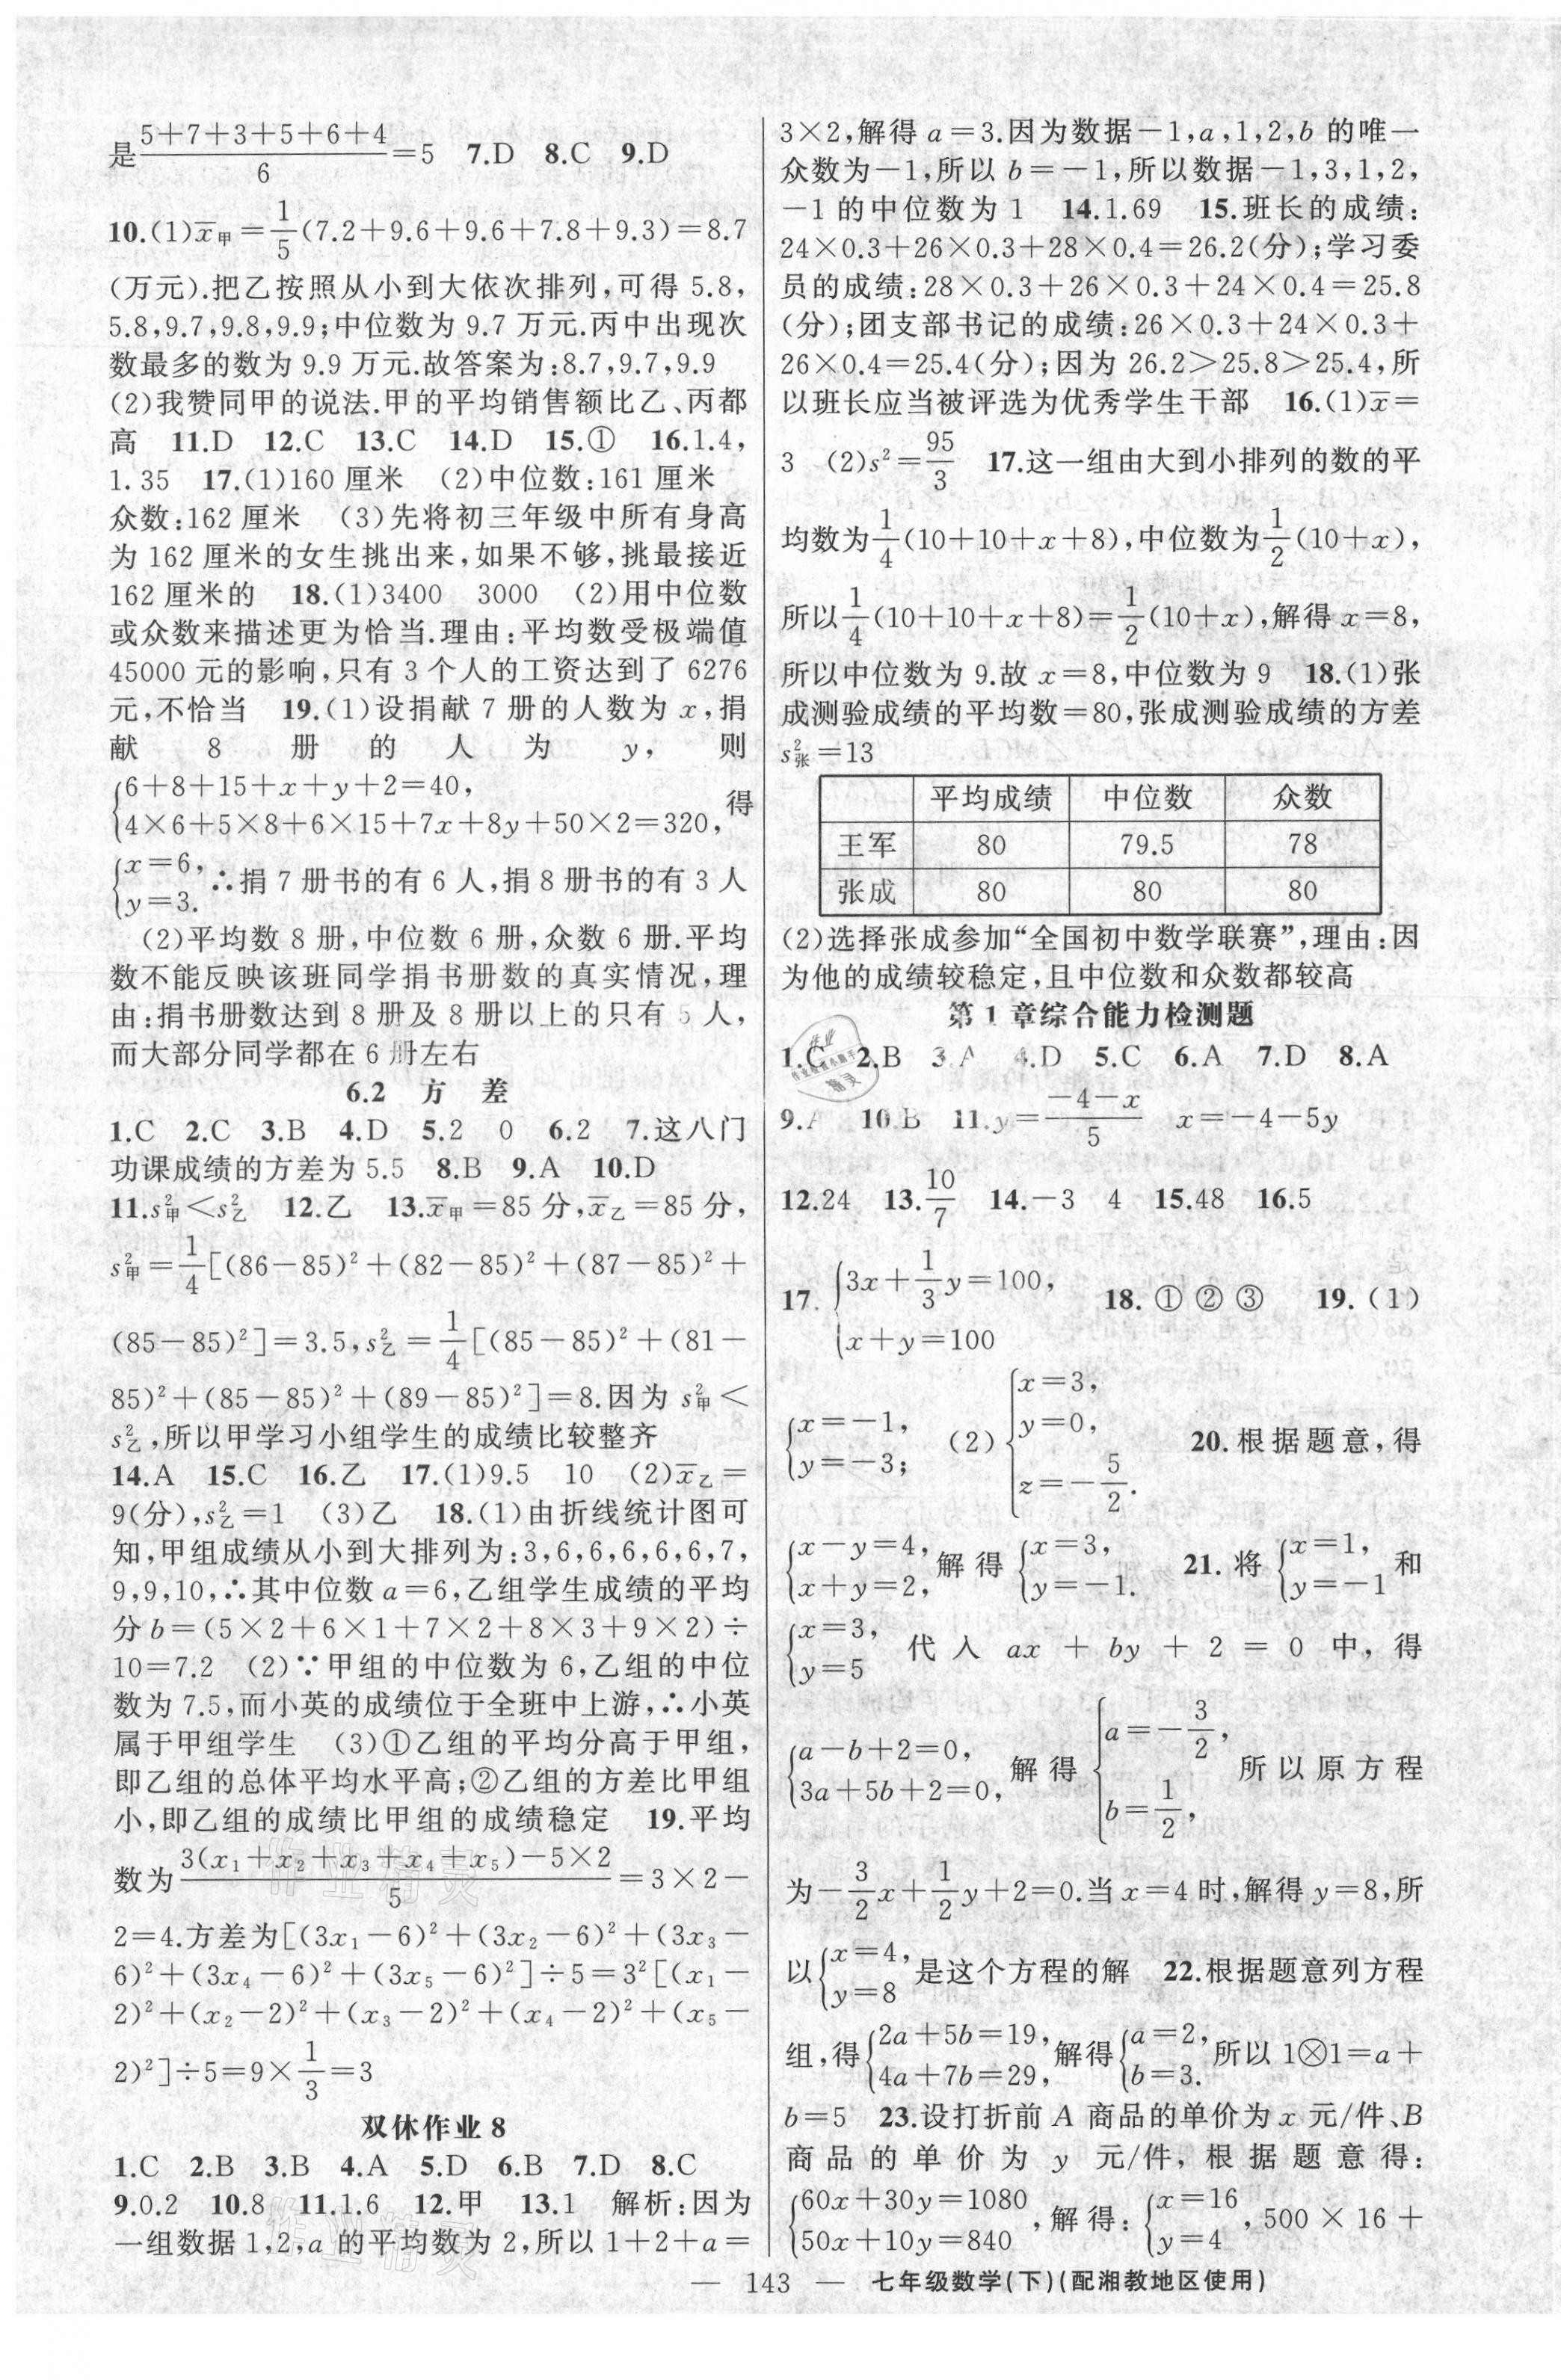 是(5+7+3+5+6+4)/6=5 7.D 8.C 9.D
10.(1)x̄甲=1/5(7.2+9.6+9.6+7.8+9.3)=8.7
(万元).把乙按照从小到大依次排列,可得 5.8,
5.8,9.7,9.8,9.9;中位数为 9.7 万元.丙中出现次
数最多的数为 9.9 万元.故答案为:8.7,9.7,9.9
(2)我赞同甲的说法.甲的平均销售额比乙、丙都
高 11.D 12.C 13.C 14.D 15.① 16.1.4,
1.35 17.(1)160 厘米 (2)中位数:161 厘米
众数:162 厘米 (3)先将初三年级中所有身高
为 162 厘米的女生挑出来,如果不够,挑最接近
162 厘米的 18.(1)3400 3000 (2)用中位数
或众数来描述更为恰当.理由:平均数受极端值
45000 元的影响,只有 3 个人的工资达到了 6276
元,不恰当 19.(1)设捐献 7 册的人数为 x,捐
献 8 册的人为 y,则
{6+8+15+x+y+2=40,
4×6+5×8+6×15+7x+8y+50×2=320, 得
{x=6,
y=3. ∴捐 7 册书的有 6 人,捐 8 册书的有 3 人
(2)平均数 8 册,中位数 6 册,众数 6 册.平均
数不能反映该班同学捐书册数的真实情况,理
由:捐书册数达到 8 册及 8 册以上的只有 5 人,
而大部分同学都在 6 册左右
6.2 方 差
1.C 2.C 3.B 4.D 5.2 0 6.2 7.这八门
功课成绩的方差为 5.5 8.B 9.A 10.D
11.s²甲<s²乙 12.乙 13.x̄甲=85 分,x̄乙=85 分,
s²甲=1/4[(86-85)²+(82-85)²+(87-85)²+
(85-85)²]=3.5,s²乙=1/4[(85-85)²+(81-
85)²+(85-85)²+(89-85)²]=8.因为 s²甲<
s²乙,所以甲学习小组学生的成绩比较整齐
14.A 15.C 16.乙 17.(1)9.5 10 (2)x̄乙=
9(分),s²乙=1 (3)乙 18.(1)由折线统计图可
知,甲组成绩从小到大排列为:3,6,6,6,6,6,7,
9,9,10,∴其中位数 a=6,乙组学生成绩的平均
分 b=(5×2+6×1+7×2+8×3+9×2)÷
10=7.2 (2)∵甲组的中位数为 6,乙组的中位
数为 7.5,而小英的成绩位于全班中上游,∴小英
属于甲组学生 (3)①乙组的平均分高于甲组,
即乙组的总体平均水平高;②乙组的方差比甲组
小,即乙组的成绩比甲组的成绩稳定 19.平均
数为(3(x₁+x₂+x₃+x₄+x₅)-5×2)/5=3×2-
2=4.方差为[(3x₁-6)²+(3x₂-6)²+(3x₃-
6)²+(3x₄-6)²+(3x₅-6)²]÷5=3²[(x₁-
2)²+(x₂-2)²+(x₃-2)²+(x₄-2)²+(x₅-
2)²]÷5=9×1/3=3
双休作业 8
1.C 2.B 3.B 4.A 5.D 6.B 7.D 8.C
9.0.2 10.8 11.1.6 12.甲 13.1 解析:因为
一组数据 1,2,a 的平均数为 2,所以 1+2+a=
3×2,解得 a=3.因为数据-1,a,1,2,b 的唯一
众数为-1,所以 b=-1,所以数据-1,3,1,2,
-1 的中位数为 1 14.1.69 15.班长的成绩:
24×0.3+26×0.3+28×0.4=26.2(分);学习委
员的成绩:28×0.3+26×0.3+24×0.4=25.8
(分);团支部书记的成绩:26×0.3+24×0.3+
26×0.4=25.4(分);因为 26.2>25.8>25.4,所
以班长应当被评选为优秀学生干部 16.(1)x̄=
3 (2)s²=95/3 17.这一组由大到小排列的数的平
均数为1/4(10+10+x+8),中位数为1/2(10+x),
所以1/4(10+10+x+8)=1/2(10+x),解得 x=8,
所以中位数为 9.故 x=8,中位数为 9 18.(1)张
成测验成绩的平均数=80,张成测验成绩的方差
s²张=13
平均成绩 中位数 众数
王军 80 79.5 78
张成 80 80 80
(2)选择张成参加“全国初中数学联赛”,理由:因
为他的成绩较稳定,且中位数和众数都较高
第 1 章综合能力检测题
1.C 2.B 3.A 4.D 5.C 6.A 7.D 8.A
9.A 10.B 11.y=(-4-x)/5 x=-4-5y
12.24 13.10/7 14.-3 4 15.48 16.5
17.{3x+1/3y=100,
x+y=100 18.①②③ 19.(1)
{x=-1,
y=-3; (2){x=3,
y=0,
z=-5/2. 20.根据题意,得
{x-y=4,
x+y=2, 解得{x=3,
y=-1. 21.将{x=1,
y=-1 和
{x=3,
y=5 代入 ax+by+2=0 中,得
{a-b+2=0,
3a+5b+2=0, 解得{a=-3/2,
b=1/2, 所以原方程
为-3/2x+1/2y+2=0.当 x=4 时,解得 y=8,所
以{x=4,
y=8 是这个方程的解 22.根据题意列方程
组,得{2a+5b=19,
4a+7b=29, 解得{a=2,
b=3. 所以 1⊗1=a+
b=5 23.设打折前 A 商品的单价为 x 元/件、B
商品的单价为 y 元/件,根据题意得:
{60x+30y=1080
50x+10y=840 ,解得:{x=16
y=4 ,500×16+
— 143 — 七年级数学(下)(配湘教地区使用)
作业精灵
作业精灵